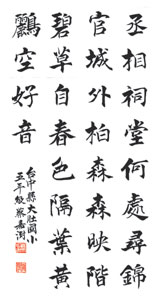 丞相祠堂何處尋錦
官城外柏森森映階
碧草自春色隔葉黃
鸝空好音
台中縣大肚國小
五年級蔡嘉